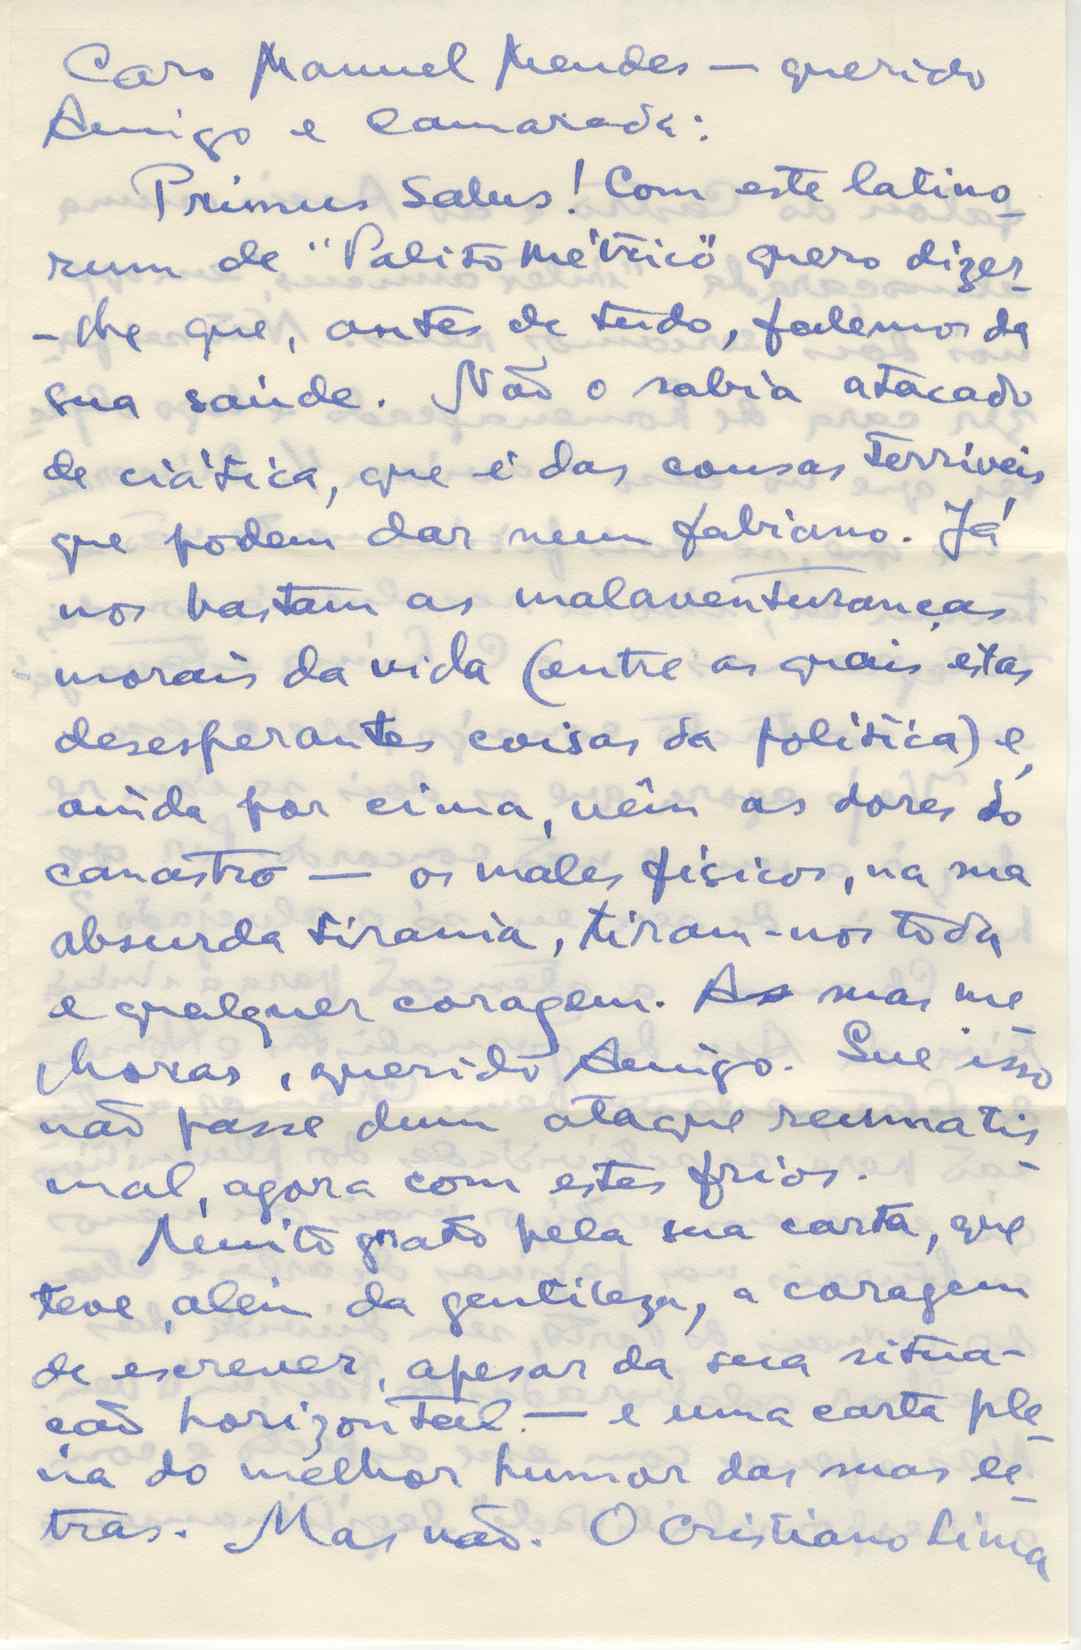 Caro Manuel Mendes — querido
Amigo e Camarada:
Primus Salus! Com este latino-
rum de "Palito Métrico" quero dizer-
-lhe que, antes de tudo, falemos da
sua saúde. Não o sabia atacado
de ciática, que é das cousas terríveis
que podem dar num fabiano. Já
nos bastam as malaventuranças
morais da vida (entre as quais estas
desesperantes coisas da política) e,
ainda por cima, vêm as dores do
canastro — os males físicos, na sua
absurda tirania, tiram-nos toda
e qualquer coragem. As suas me-
lhoras, querido Amigo. Que isso
não passe dum ataque reumatis-
mal, agora com estes frios.
Muito grato pela sua carta, que
teve, além da gentileza, a coragem
de escrever, apesar da sua situa-
ção horizontal — e uma carta ple-
na do melhor humor das suas le-
tras. Mas não. O Cristiano Lima